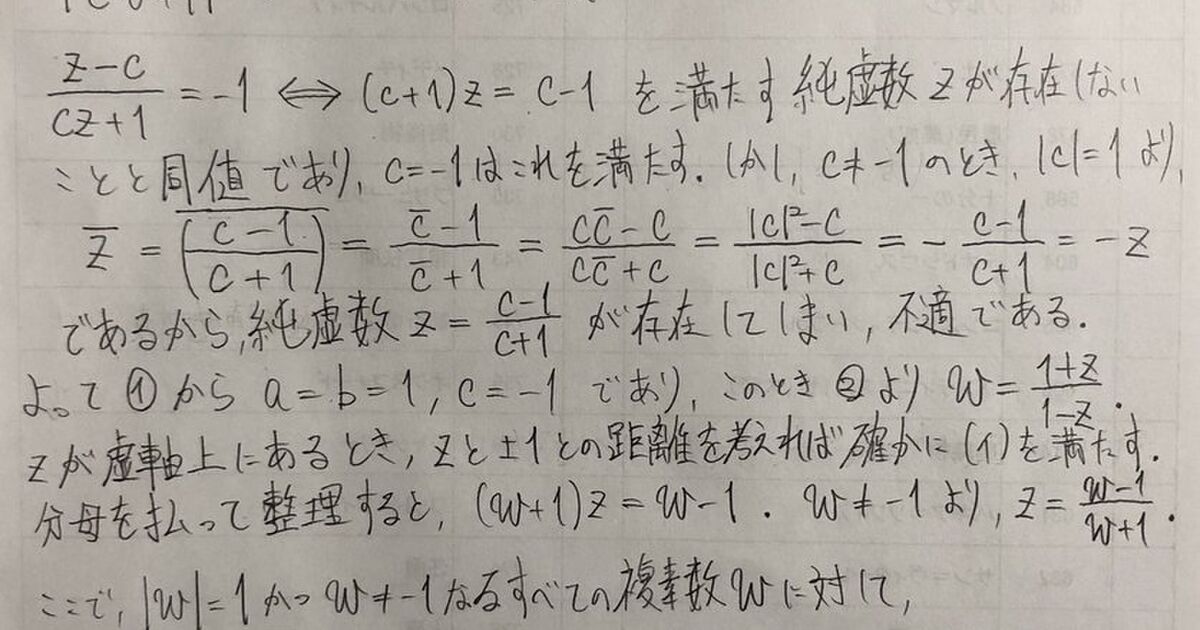 (z-c)/(cz+1) = -1 ⇔ (c+1)z = c-1 を満たす純虚数 z が存在しない
ことと同値であり, c=-1はこれを満たす. しかし, c≠-1のとき, |c|=1より,
z̄ = \overline{((c-1)/(c+1))} = (c̄-1)/(c̄+1) = (cc̄-c)/(cc̄+c) = (|c|²-c)/(|c|²+c) = -(c-1)/(c+1) = -z
であるから, 純虚数 z = (c-1)/(c+1) が存在してしまい, 不適である.
よって ① から a=b=1, c=-1 であり, このとき ② より w = (1+z)/(1-z).
zが虚軸上にあるとき, zと±1との距離を考えれば確かに(イ)を満たす.
分母を払って整理すると, (w+1)z = w-1. w≠-1 より, z = (w-1)/(w+1).
ここで, |w|=1かつw≠-1なるすべての複素数wに対して,